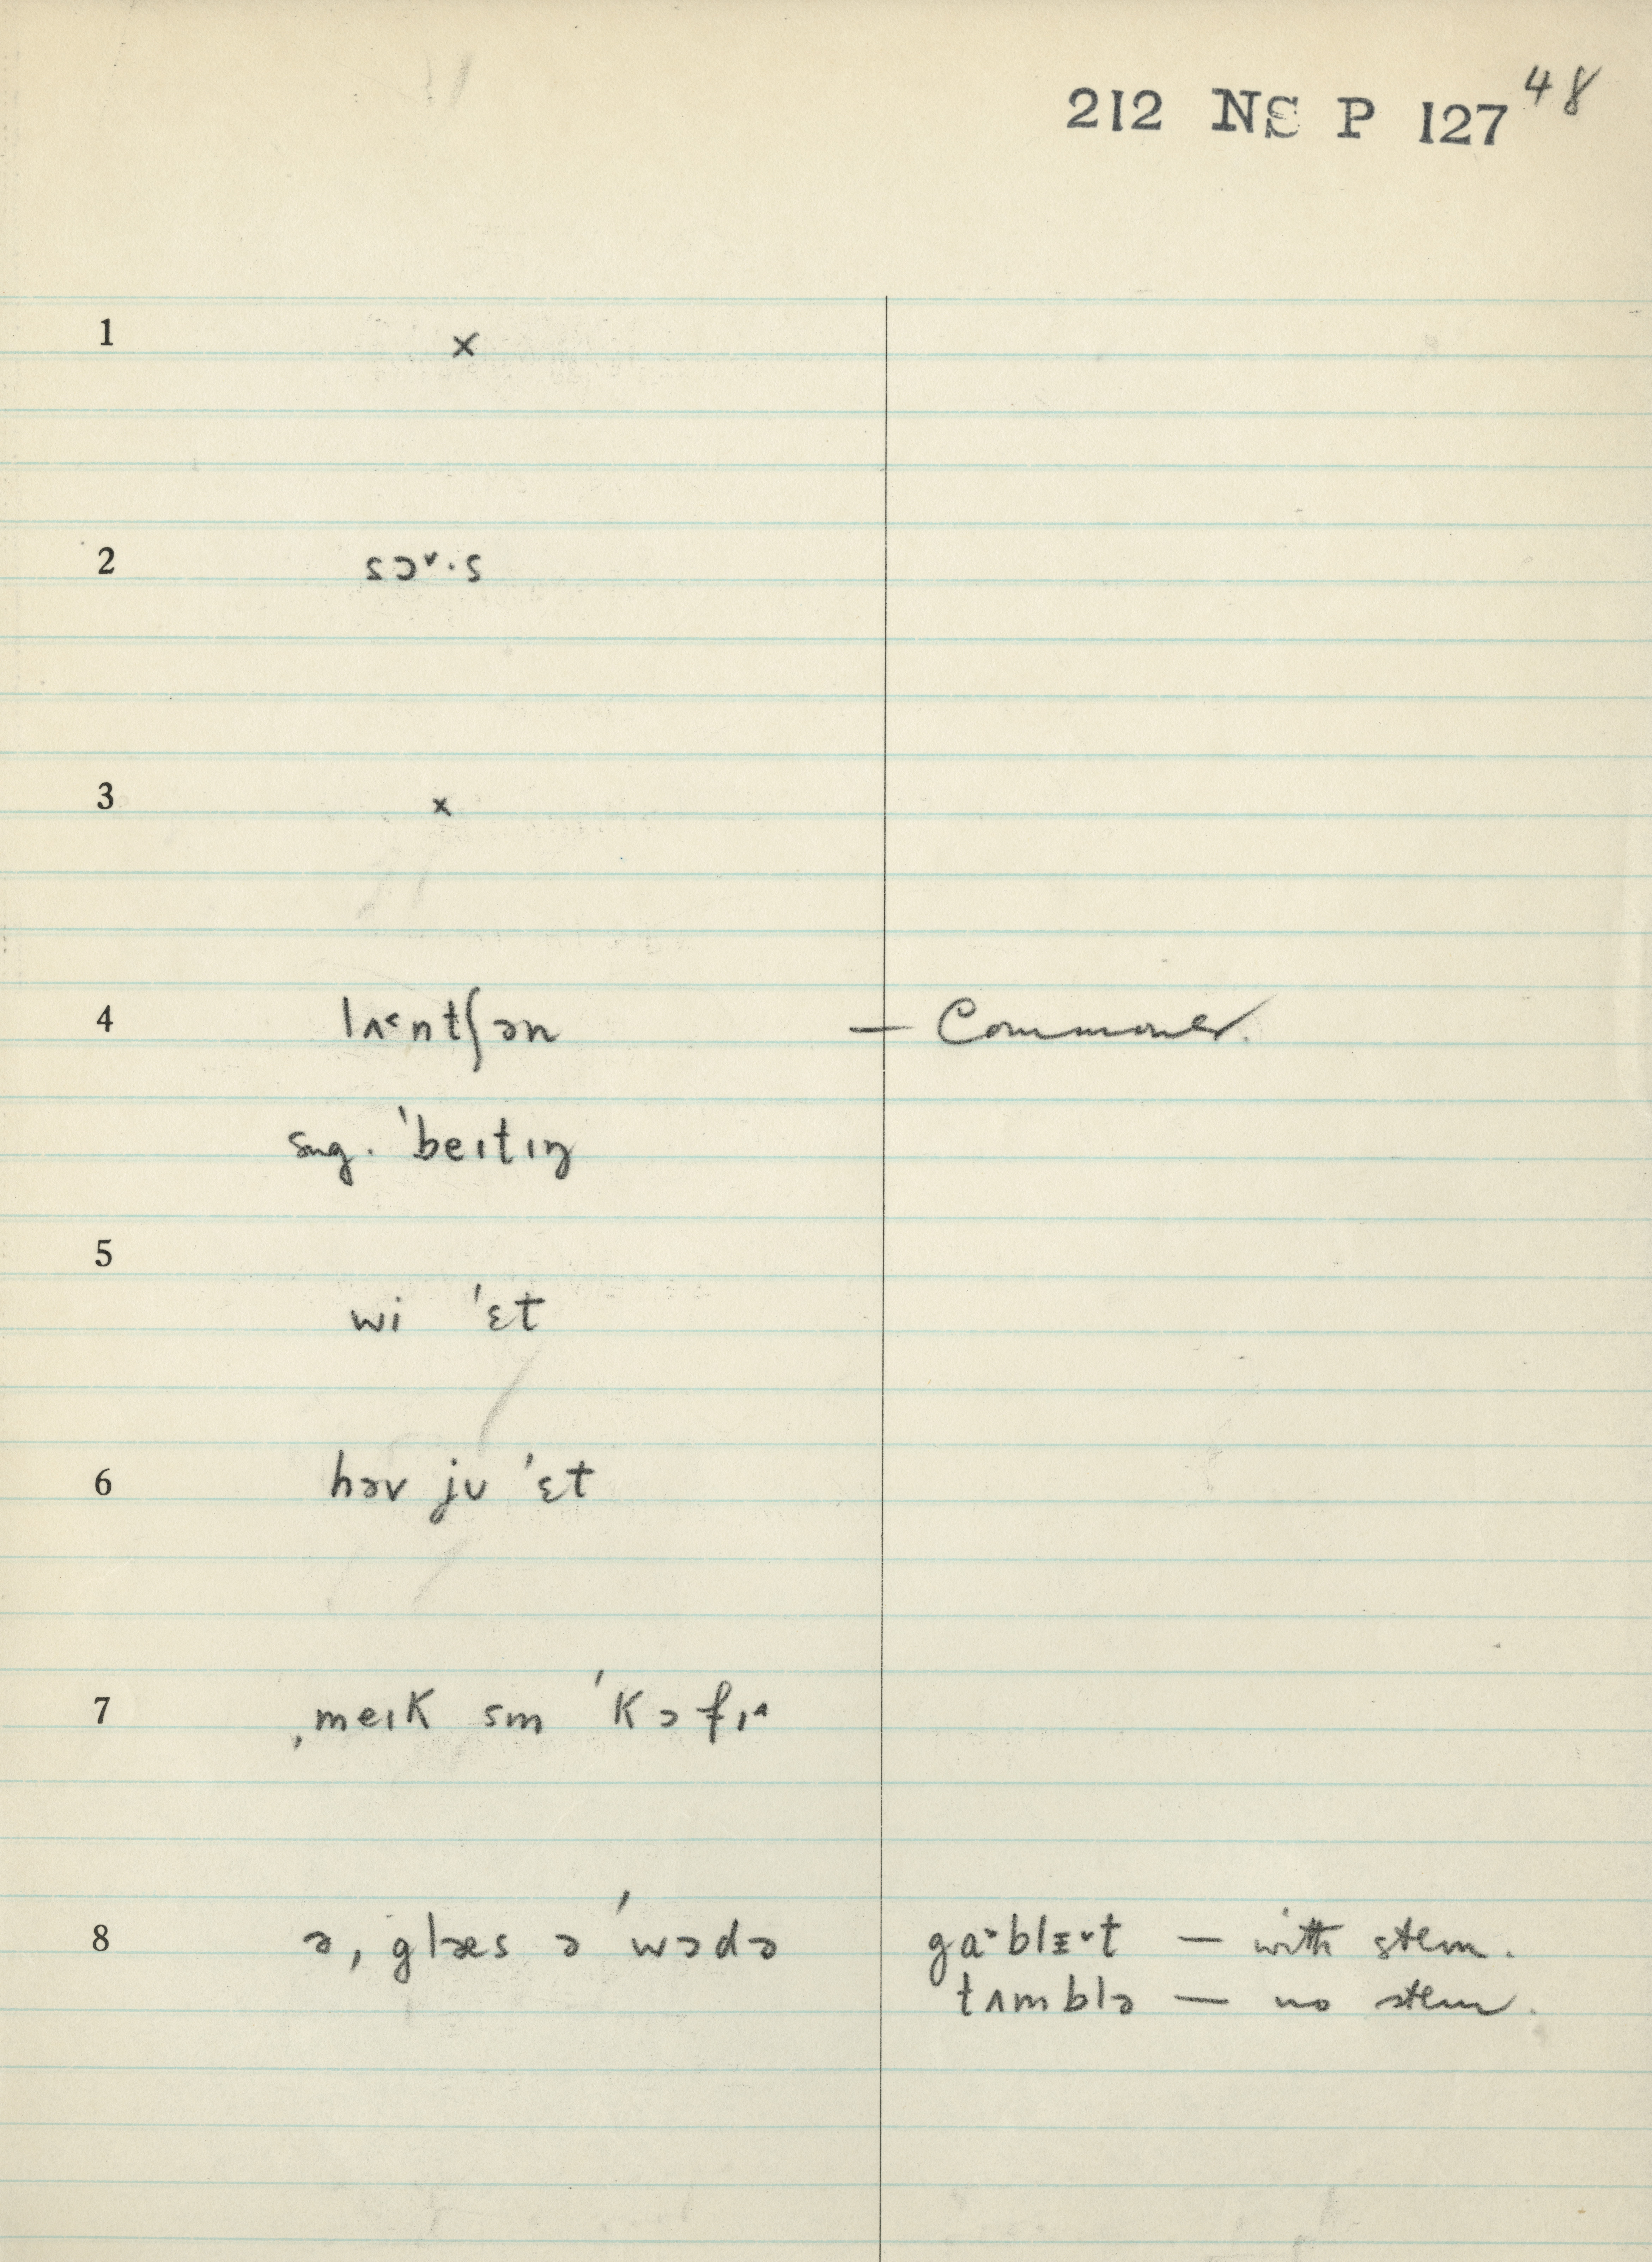 212 NS P 127 48
1 ×
2 sɔ˅·s
3 ×
4 lʌ˂ntʃən — Commoner.
sug. ˈbeɪtɪŋ
5
wi ˈɛt
6 həv jʊ ˈɛt
7 ˌmeɪk sm ˈkɔfɪ˄
8 ə ˌglæs ə ˈwɔdə gɑ˃blɪ˅t — with stem.
tʌmblə — no stem.